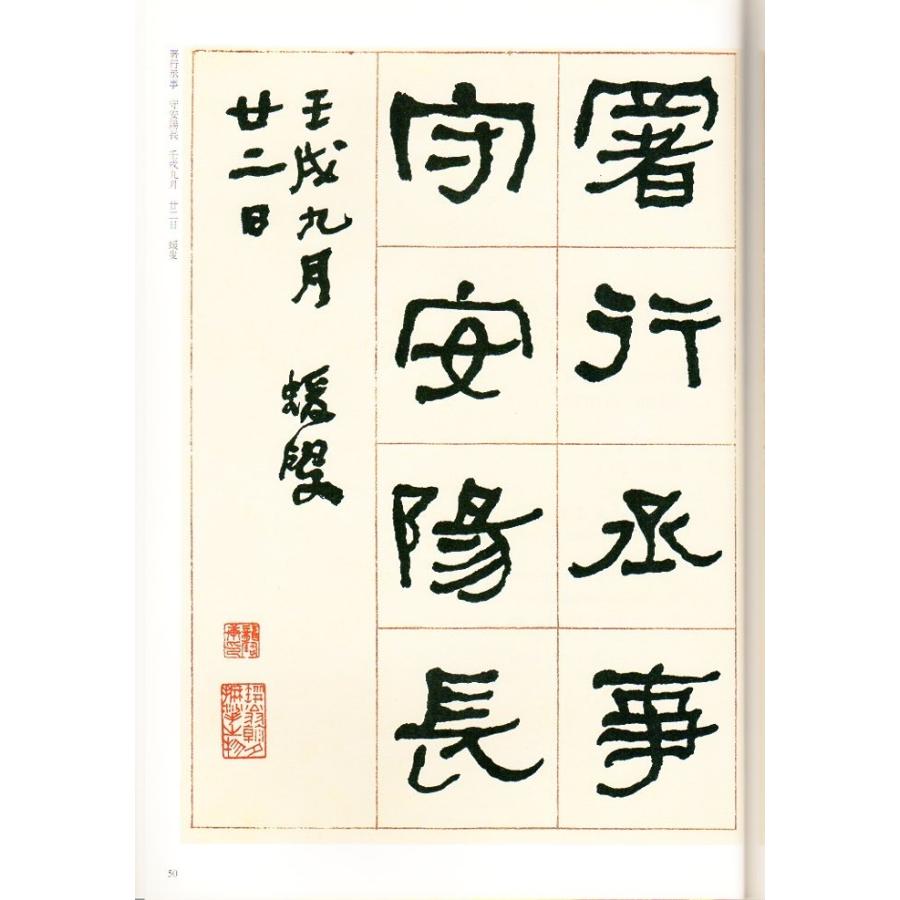 署行丞事
守安陽長
壬戌九月 蝯叟
廿二日
署行丞事 守安陽長 壬戌九月 廿二日 蝯叟
50